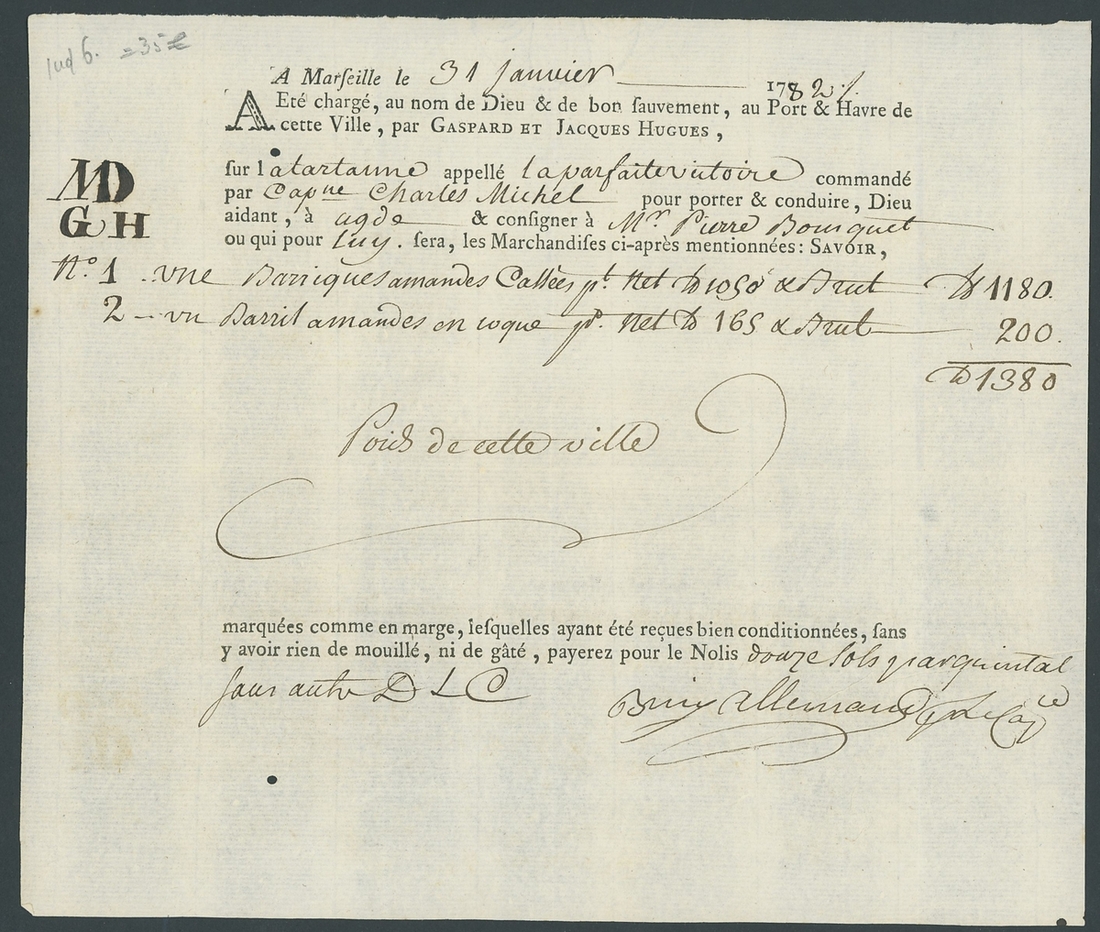 A Marſeille le 31 Janvier 1782
A Eté chargé, au nom de Dieu & de bon ſauvement, au Port & Havre de
cette Ville, par GASPARD ET JACQUES HUGUES,
ſur l atartanne appellé la parfaite victoire commandé
par Capne Charles Michel pour porter & conduire, Dieu
aidant, à agde & conſigner à Mr. Pierre Bousquet
ou qui pour luy. ſera, les Marchandiſes ci-après mentionnées: SAVOIR,
MD
GH
N.o 1 une Barriques amandes Caſſées pt. Net ℔ 1050 & Brut ℔ 1180.
2 un Barril amandes en coque pt. Net ℔ 165 & Brut 200.
℔ 1380
Poids de cette ville
marquées comme en marge, leſquelles ayant été reçues bien conditionnées, ſans
y avoir rien de mouillé, ni de gâté, payerez pour le Nolis douze ſols par quintal
ſans autre D L C
allemand